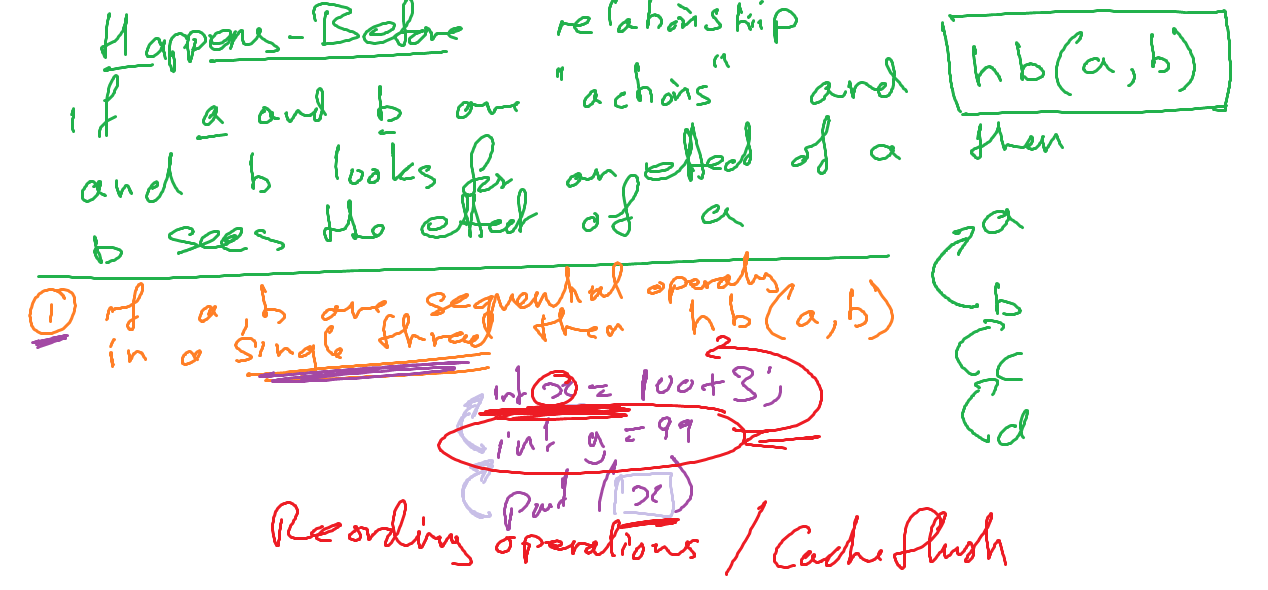 Happens-Before relationship
hb(a,b)
if a and b are "actions" and
and b looks for an effect of a then
b sees the effect of a
a
b
c
d
① if a, b are sequential
in a single thread then hb(a,b)
int x = 100+3;
int y = 99
print (x)
Reording operations / Cache flush